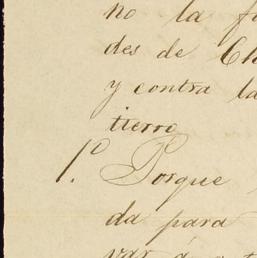 no la
des de
y contra la
tierro
1º. Porque
da para
var á